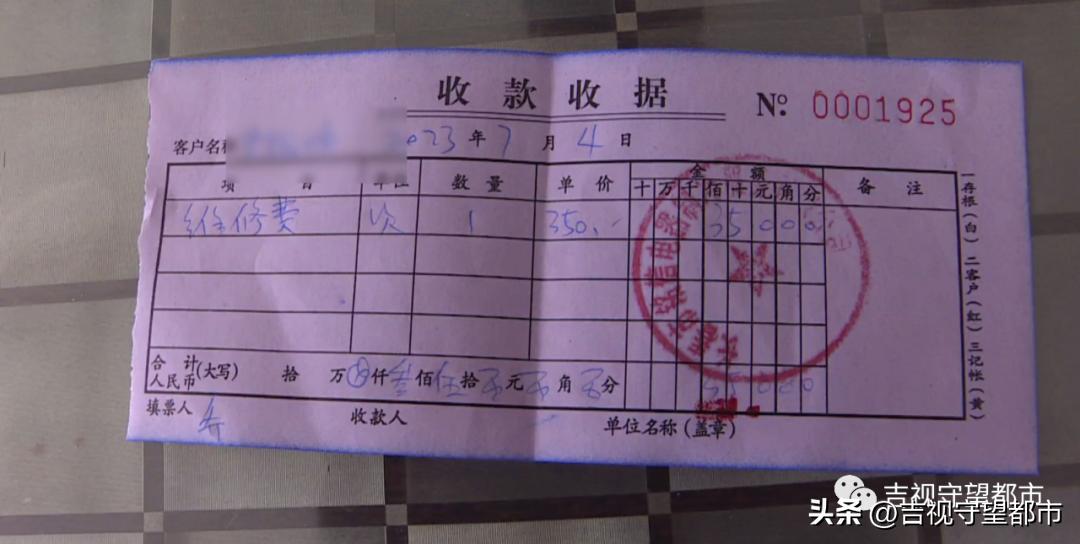 收款收据
No: 0001925
客户名称
2023年7月4日
项目 单位 数量 单价 金额 备注
十万千佰十元角分
维修费 次 1 350.- 35000
合计人民币(大写) 拾 万 仟叁佰伍拾 元 角 分 35000
填票人 收款人 单位名称(盖章)
一存根(白)二客户(红)三记帐(黄)
吉视守望都市
头条 @吉视守望都市